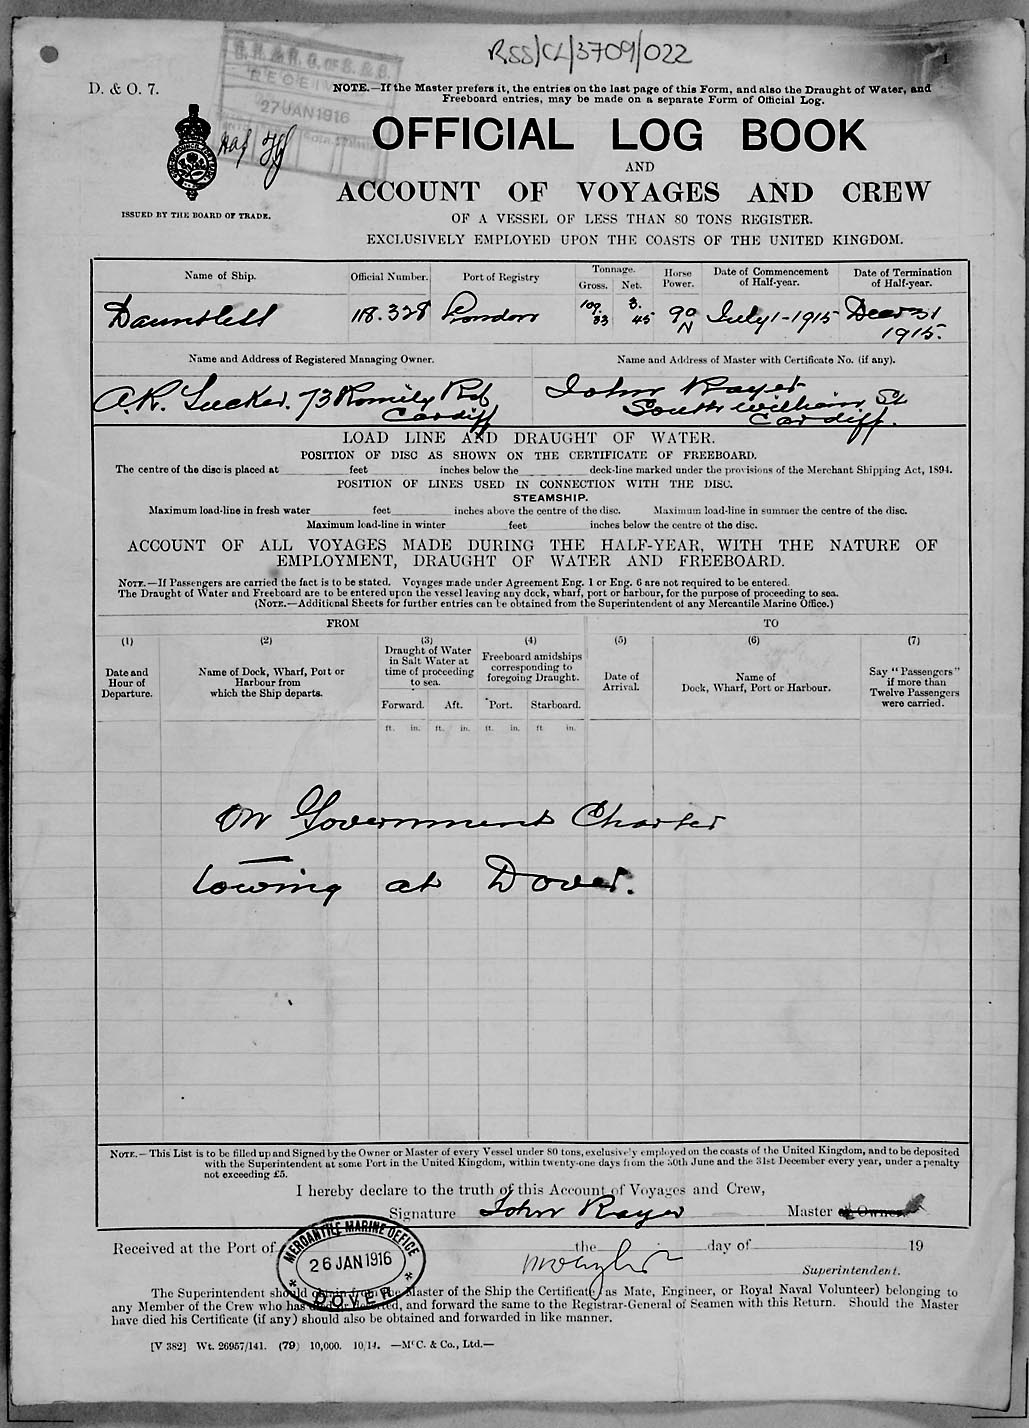 RSS/CL/3709/022
1
D. & O. 7.
RECEIVED
27 JAN 1916
NOTE.—If the Master prefers it, the entries on the last page of this Form, and also the Draught of Water, and
Freeboard entries, may be made on a separate Form of Official Log.
OFFICIAL LOG BOOK
AND
ACCOUNT OF VOYAGES AND CREW
OF A VESSEL OF LESS THAN 80 TONS REGISTER.
EXCLUSIVELY EMPLOYED UPON THE COASTS OF THE UNITED KINGDOM.
ISSUED BY THE BOARD OF TRADE.
Name of Ship. Official Number. Port of Registry Tonnage. Gross. Net. Horse Power. Date of Commencement of Half-year. Date of Termination of Half-year.
Dauntless 118.328 London 109.33 3.45 90 N July 1-1915 Decr 31 1915.
Name and Address of Registered Managing Owner. Name and Address of Master with Certificate No. (if any).
A.R. Tucker. 73 Romily Rd Cardiff John Rayer South William St Cardiff.
LOAD LINE AND DRAUGHT OF WATER.
POSITION OF DISC AS SHOWN ON THE CERTIFICATE OF FREEBOARD.
The centre of the disc is placed at feet inches below the deck-line marked under the provisions of the Merchant Shipping Act, 1894.
POSITION OF LINES USED IN CONNECTION WITH THE DISC.
STEAMSHIP.
Maximum load-line in fresh water feet inches above the centre of the disc. Maximum load-line in summer the centre of the disc.
Maximum load-line in winter feet inches below the centre of the disc.
ACCOUNT OF ALL VOYAGES MADE DURING THE HALF-YEAR, WITH THE NATURE OF
EMPLOYMENT, DRAUGHT OF WATER AND FREEBOARD.
NOTE.—If Passengers are carried the fact is to be stated. Voyages made under Agreement Eng. 1 or Eng. 6 are not required to be entered.
The Draught of Water and Freeboard are to be entered upon the vessel leaving any dock, wharf, port or harbour, for the purpose of proceeding to sea.
(NOTE.—Additional Sheets for further entries can be obtained from the Superintendent of any Mercantile Marine Office.)
FROM TO
(1) (2) (3) (4) (5) (6) (7)
Date and Hour of Departure. Name of Dock, Wharf, Port or Harbour from which the Ship departs. Draught of Water in Salt Water at time of proceeding to sea. Freeboard amidships corresponding to foregoing Draught. Date of Arrival. Name of Dock, Wharf, Port or Harbour. Say "Passengers" if more than Twelve Passengers were carried.
Forward. Aft. Port. Starboard.
ft. in. ft. in. ft. in. ft in.
On Government Charter
towing at Dover.
NOTE.—This List is to be filled up and Signed by the Owner or Master of every Vessel under 80 tons, exclusively employed on the coasts of the United Kingdom, and to be deposited
with the Superintendent at some Port in the United Kingdom, within twenty-one days from the 30th June and the 31st December every year, under a penalty
not exceeding £5.
I hereby declare to the truth of this Account of Voyages and Crew,
Signature John Rayer Master or Owner.
Received at the Port of the day of 19
MERCANTILE MARINE OFFICE
26 JAN 1916
* DOVER *
Superintendent.
The Superintendent should obtain from the Master of the Ship the Certificate (as Mate, Engineer, or Royal Naval Volunteer) belonging to
any Member of the Crew who has died or deserted, and forward the same to the Registrar-General of Seamen with this Return. Should the Master
have died his Certificate (if any) should also be obtained and forwarded in like manner.
[V 382] Wt. 26957/141. (79) 10,000. 10/14. —McC. & Co., Ltd.—